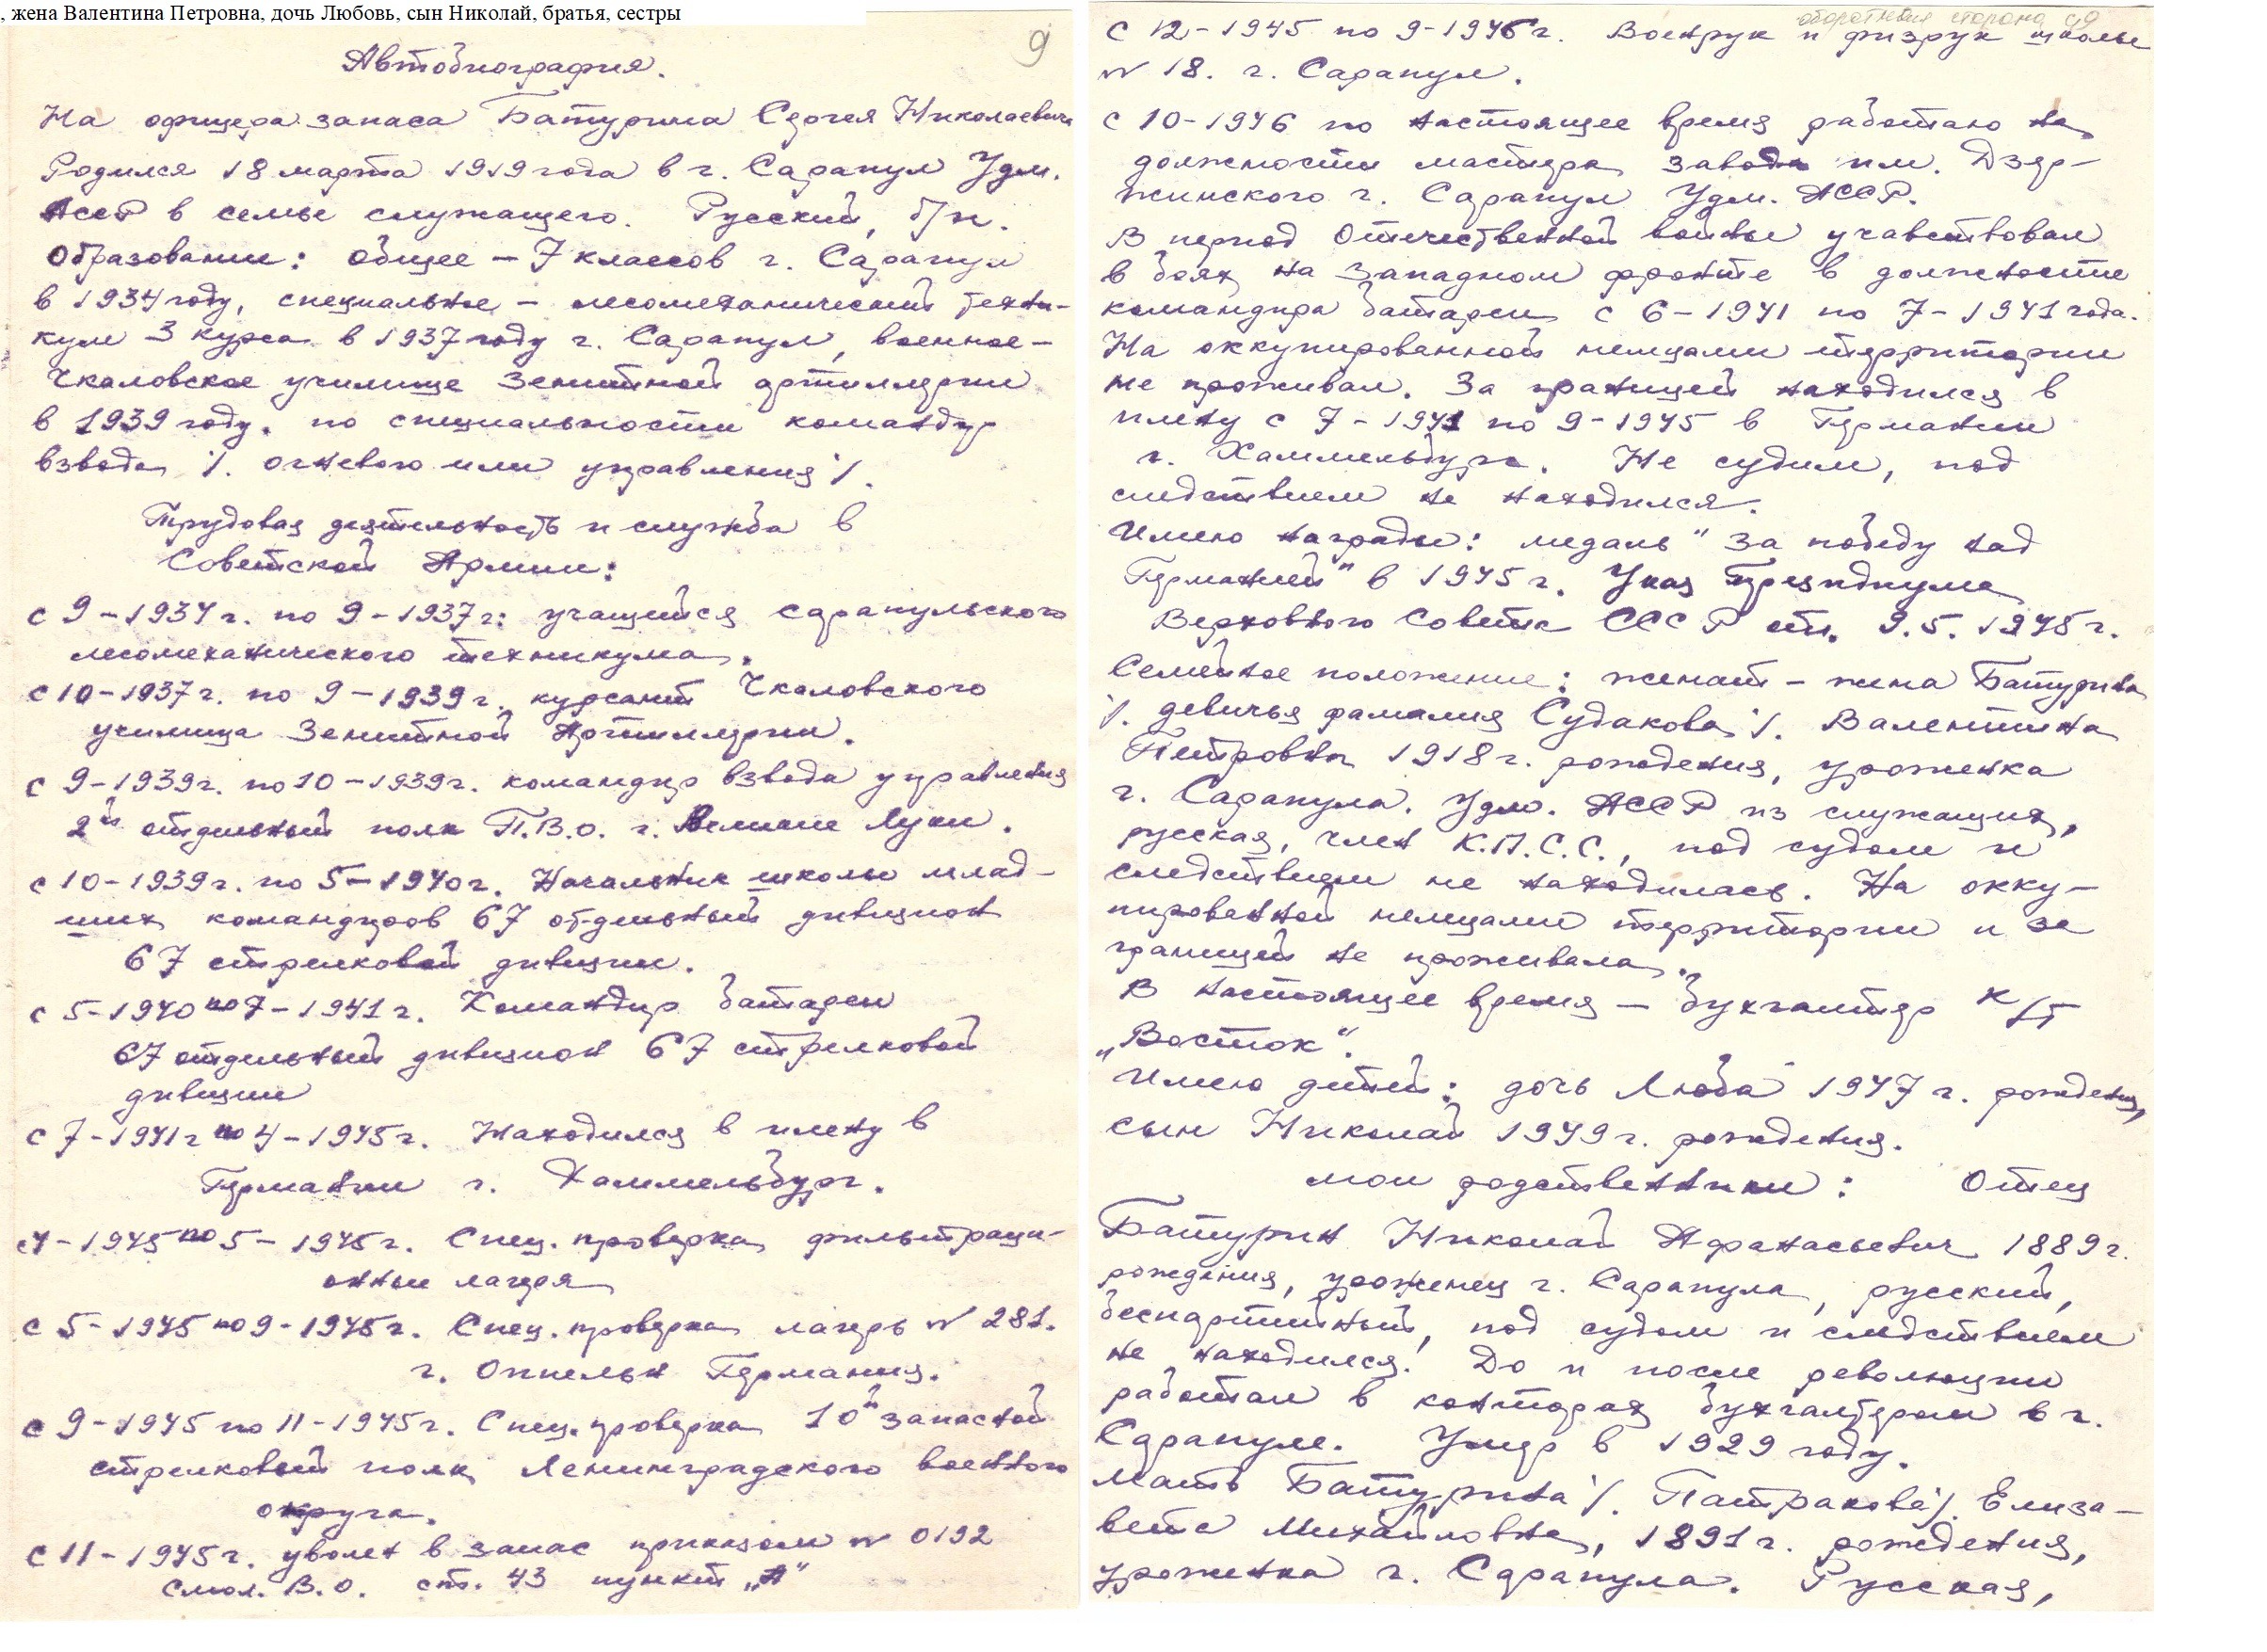 , жена Валентина Петровна, дочь Любовь, сын Николай, братья, сестры
9
Автобиография.
На офицера запаса Батурина Сергея Николаевича
Родился 18 марта 1919 года в г. Сарапул Удм.
АССР в семье служащего. Русский, б/п.
Образование: общее – 7 классов г. Сарапул
в 1934 году, специальное – лесомеханический техни-
кум 3 курса в 1937 году г. Сарапул, военное –
Чкаловское училище Зенитной артиллерии
в 1939 году. по специальности командир
взвода /. огневого или управления /.
Трудовая деятельность и служба в
Советской Армии:
с 9-1934 г. по 9-1937 г: учащийся сарапульского
лесомеханического техникума.
с 10-1937 г. по 9-1939 г. курсант Чкаловского
училища Зенитной Артиллерии.
с 9-1939 г. по 10-1939 г. командир взвода управления
2й отдельный полк П.В.О. г. Великие Луки.
с 10-1939 г. по 5-1940 г. Начальник школы млад-
ших командиров 67 отдельный дивизион
67 стрелковой дивизии.
с 5-1940 по 7-1941 г. Командир батареи
67 отдельный дивизион 67 стрелковой
дивизии
с 7-1941 г по 4-1945 г. Находился в плену в
Германии г. Хаммельбург.
с 4-1945 по 5-1945 г. Спец. проверка фильтраци-
онные лагеря
с 5-1945 по 9-1945 г. Спец. проверка лагерь N 281.
г. Оппельн Германия.
с 9-1945 по 11-1945 г. Спец. проверка 10й запасной
стрелковый полк Ленинградского военного
округа.
с 11-1945 г. уволен в запас приказом N 0192
Смол. В.О. ст. 43 пункт „А"
оборотная сторона с9
с 12-1945 по 9-1946 г. Военрук и физрук школы
N 18. г. Сарапул.
с 10-1946 по настоящее время работаю на
должности мастера завода им. Дзер-
жинского г. Сарапул Удм. АССР.
В период Отечественной войны учавствовал
в боях на Западном фронте в должности
командира батареи с 6-1941 по 7-1941 года.
На оккупированной немцами территории
не проживал. За границей находился в
плену с 7-1941 по 9-1945 в Германии
г. Хаммельбург. Не судим, под
следствием не находился.
Имею награды: медаль "За победу над
Германией" в 1945 г. Указ Президиума
Верховного Совета СССР от. 9.5.1945 г.
Семейное положение: женат – жена Батурина
/. девичья фамилия Судакова /. Валентина
Петровна 1918 г. рождения, уроженка
г. Сарапула. Удм. АССР из служащих,
русская, член К.П.С.С., под судом и
следствием не находилась. На окку-
пированной немцами территории и за
границей не проживала.
В настоящее время – бухгалтер к/т
„Восток".
Имею детей: дочь Люба 1947 г. рождения,
сын Николай 1949 г. рождения.
мои родственники: Отец
Батурин Николай Афанасьевич 1889 г.
рождения, уроженец г. Сарапула, русский,
беспартийный, под судом и следствием
не находился. До и после революции
работал в конторах бухгалтером в г.
Сарапуле. Умер в 1929 году.
Мать Батурина /. Патракова /. Елиза-
вета Михайловна, 1891 г. рождения,
уроженка г. Сарапула. Русская,